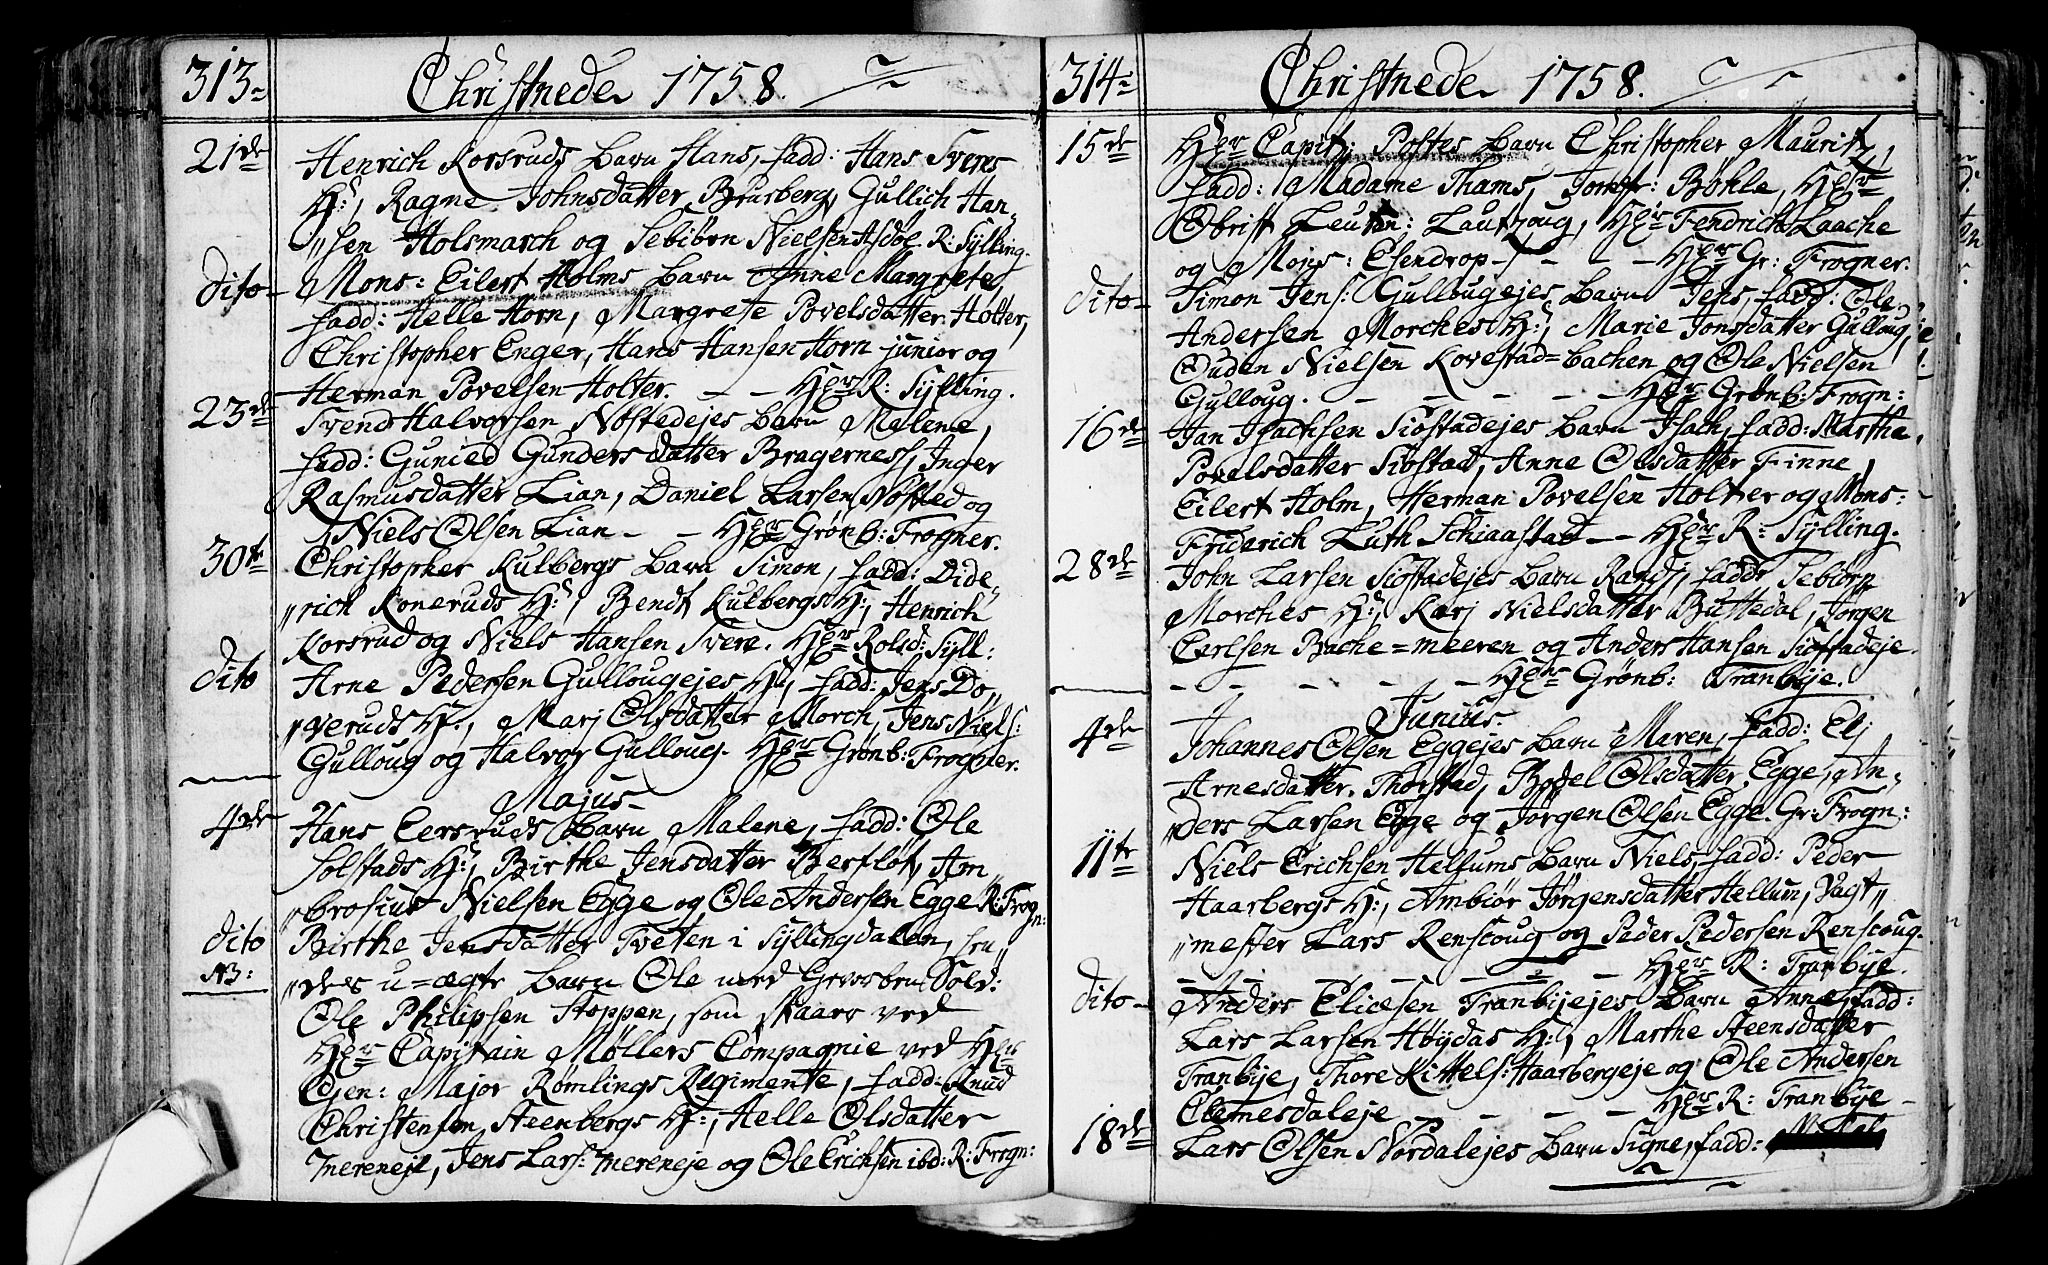 313
Christnede 1758.
21de Henrich Korsruds barn Hans, fadd: Hans Sveres
H:, Ragne Johnsdatter Brusberg, Gullich Han-
„sen Holsmarch og Sebiörn Nielsen Asdöl. R: Sylling.
dito Mons: Eilert Holms barn Anne Margrete,
fadd: Helle Horn, Margrete Povelsdatter Holter,
Christopher Enger, Hans Hansen Horn junior og
Herman Povelsen Holter. - - Hr R: Sylling.
23de Svend Halvorsen Nöstedejes barn Malene,
fadd: Gunied Gundersdatter Bragernes, Inger
Rasmusdatter Lian, Daniel Larsen Nösted og
Niels Olsen Lian - - Hr Grönb: Frogner.
30te Christopher Kulbergs barn Simon, fadd: Dide-
„rich Koneruds H:, Bendt Kulbergs H:, Henrich
Korsrud og Niels Hansen Svere. Hr Rolsd: Syll:
dito Arne Pedersen Gullougejes H:, fadd: Jens Do-
„veruds H:, Marj Olsdatter Morch, Jens Niels:
Gulloug og Halvor Gulloug. Hr Grönb: Frogner.
Majus
4de Hans Eersruds barn Malene, fadd: Ole
Solstads H:, Birthe Jensdatter Berflöt, Am
„brosius Nielsen Egge og Ole Andersen Egge R: Frogn:
dito Birthe Jensdatter Tveten i Syllingdalen,
NB: „des u=ægte barn Ole med Gevorben Sold:
Ole Philipsen Stoppen, som staaer ved
Hr Capitain Möllers Compagnie ved Hr
Gen: Major Römlings Regimente, fadd: Knud
Christensen Steenbergs H:, Helle Olsdatter
Mereneje, Jens Lars: Mereneje og Ole Erichsen ibd: R: Frogn:
314
Christnede 1758.
15de Hr Capit: Poltes barn Christopher Mauritz,
fadd: Madame Thams, Jomfr: Böhle, Hr
Obrist Leutn: Lautzoug, Hr Fendrich Laache
og Mons: Esendrop - - - Hr Gr: Frogner.
dito Simon Jens: Gullougejes barn Jens, fadd: Ole
Andersen Morches H:, Marie Jonsdatter Gulloug,
Ouden Nielsen Kovestad=bachen og Ole Nielsen
Gulloug. - - - - - Hr Grönb: Frogn:
16de Jan Isachsen Siöstadejes barn Isach, fadd: Marthe
Povelsdatter Siöstad, Anne Olsdatter Finne,
Eilert Holm, Herman Povelsen Holter og Mons:
Friderich Luth Schiaastad - - Hr R: Sylling.
28de John Larsen Siöstadejes barn Randj, fadd: Sebiörn
Morches H:, Karj Nielsdatter Buttedal, Jörgen
Cerlsen Bache=meeren og Anders Hansen Siöstadeje.
- - - - - Hr Grönb: Tranbÿe.
Junius.
4de Johannes Olsen Eggejes barn Maren, fadd: Elj
Arnesdatter Thorstad, Bodel Olsdatter Egge, An-
„ders Larsen Egge og Jörgen Olsen Egge. Gr: Frogn:
11te Niels Erichsen Hellums barn Niels, fadd: Peder
Haarbergs H:, Ambiör Jörgensdatter Hellum, Vagt„
„mester Lars Renscoug og Peder Pedersen Renscoug.
- - - - - Hr R: Tranbÿe.
dito Anders Elicesen Tranbÿejes barn Anne, fadd:
Lars Larsen Höÿdas H:, Marthe Steensdatter
Tranbÿe, Thore Kittels: Haarbergeje og Ole Andersen
Clemesdaleje - - - - Hr R: Tranbÿe
18de Lars Olsen Nordalejes barn Signe, fadd: